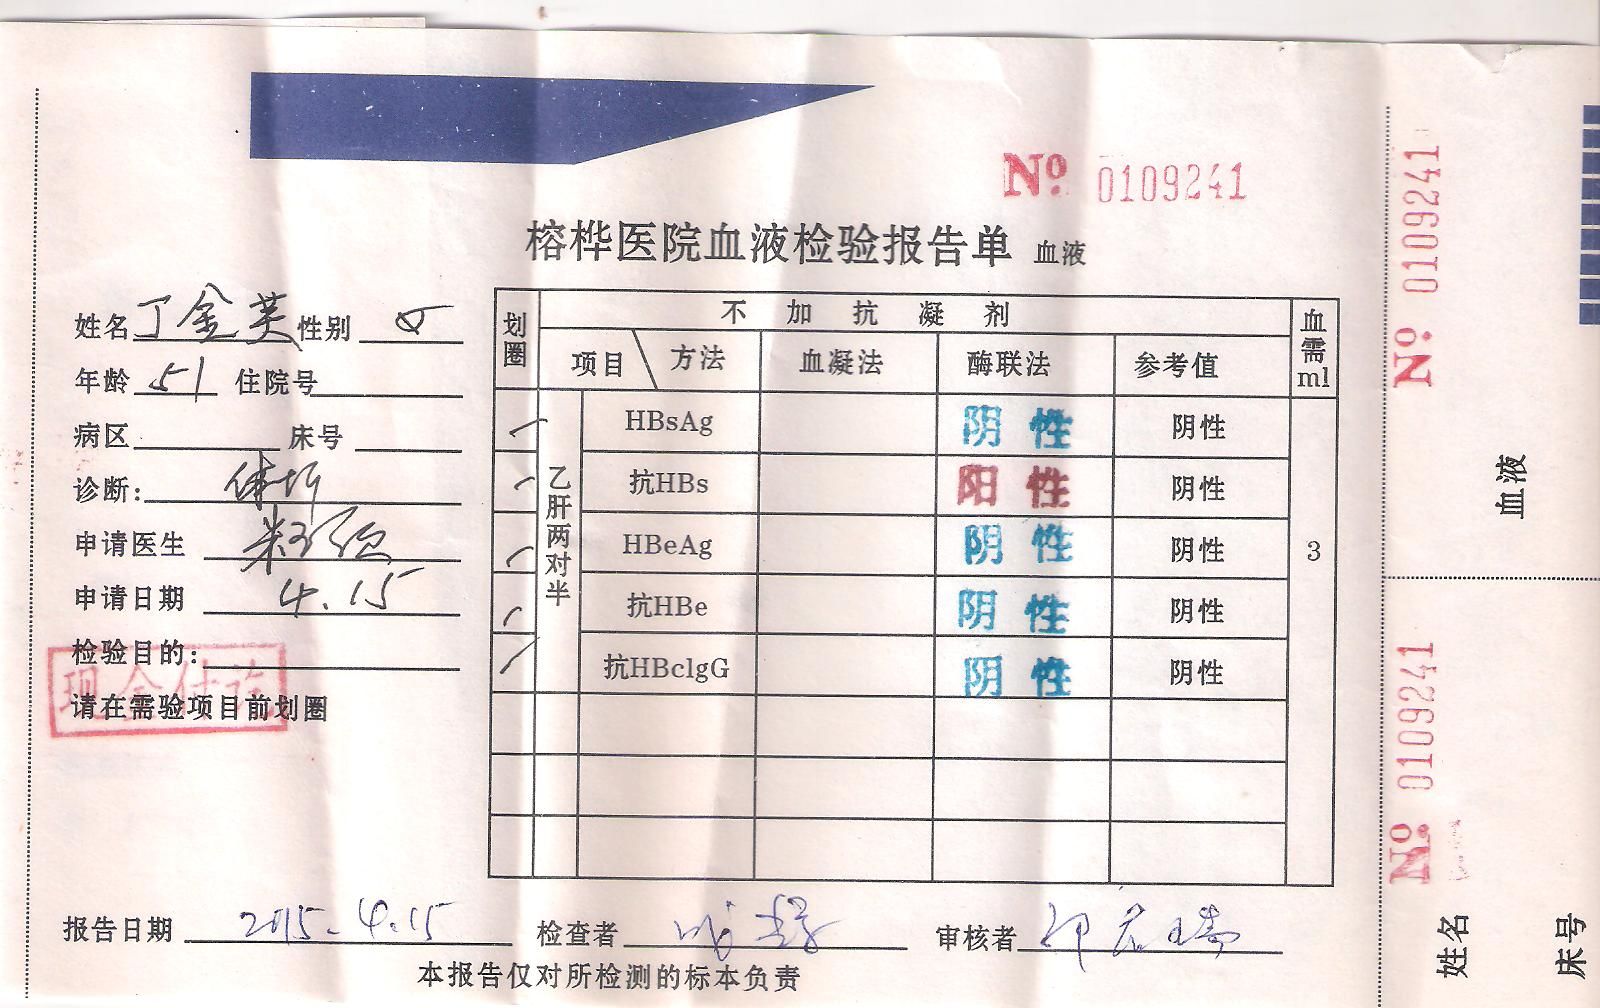 № 0109241
榕桦医院血液检验报告单 血液
姓名 丁金英 性别 女
年龄 51 住院号
病区 床号
诊断:
申请医生
申请日期 4.15
检验目的:
现金付讫
请在需验项目前划圈
划圈 不加抗凝剂 血需ml
项目 方法 血凝法 酶联法 参考值
乙肝两对半
HBsAg 阴性 阴性
抗HBs 阳性 阴性
HBeAg 阴性 阴性 3
抗HBe 阴性 阴性
抗HBclgG 阴性 阴性
报告日期 2015.4.15 检查者 审核者
本报告仅对所检测的标本负责
№ 0109241
血液
№ 0109241
姓名
床号